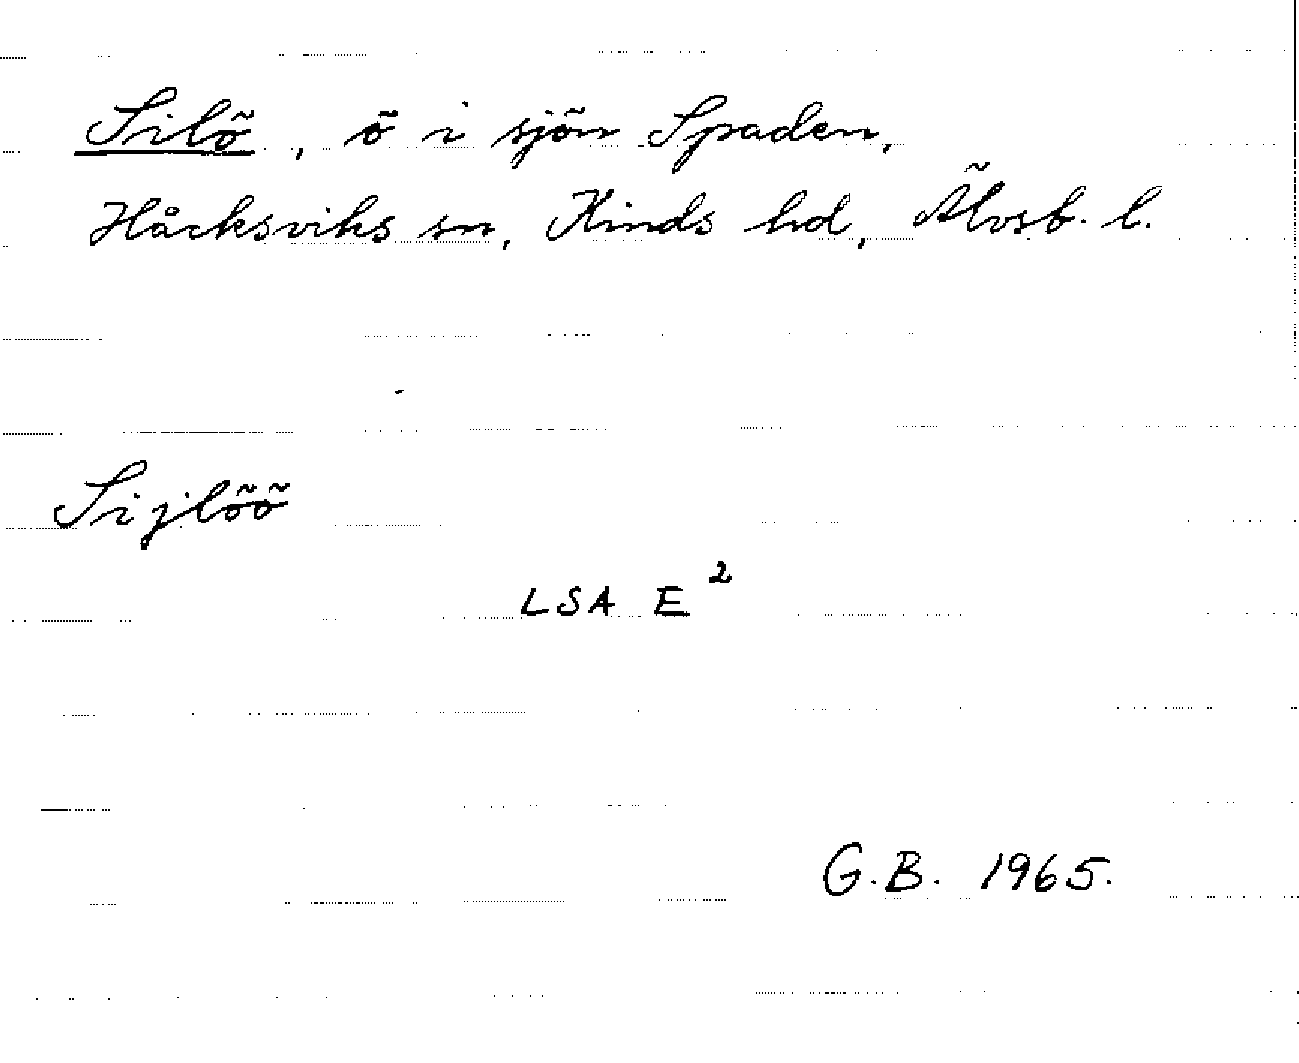 Silö, ö i sjön Spaden,
Håcksviks sn, Kinds hd, Älvsb. l.
Sijlöö
LSA E²
G.B. 1965.